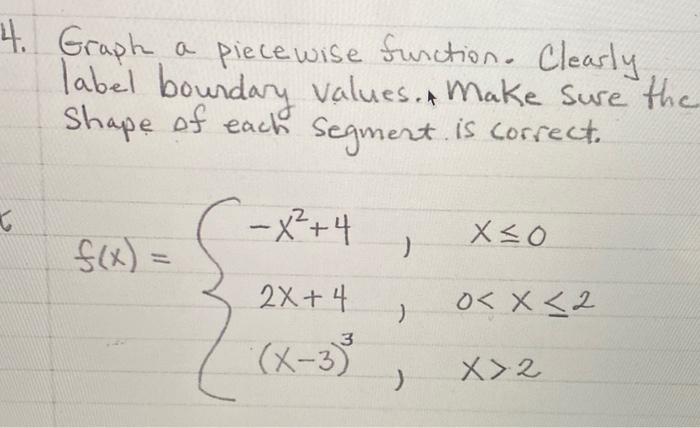 4. Graph a piecewise function. Clearly
label boundary values. Make sure the
shape of each segment is correct.
-x²+4 , x≤0
f(x) =
2x+4 , 0<x≤2
(x-3)³ , x>2